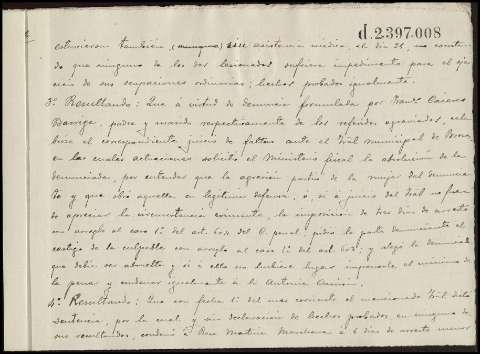 d.2.397.008
estuvieron tambien asistencia médica, el dia 21, no constan
do que ninguno de los dos lesionados sufriera impedimento para el ejer
cicio de sus ocupaciones ordinarias; hechos probados igualmente.
3º Resultando: Que a virtud de denuncia formulada por
padre y marido respectivamente de los referidos agraviados, cele
brose el correspondiente juicio de faltas ante el Tral municipal de
en las cuales actuaciones solicitó el Ministerio fiscal la absolución de la
denunciada, por entender que la agresión partió de la mujer del denuncian
te y que obró aquella en legítima defensa, o, si a juicio del Tral no fuera
de apreciar la circunstancia eximente, la imposición de tres dias de arresto
con arreglo al caso 1º del art. 604 del C. penal; pidió la parte denunciante el
castigo de la culpable con arreglo al caso 1º del art. 602; y alegó la denunciada
que debia ser absuelta y si a ello no hubiere lugar imponerle el minimo de
la pena y condenar igualmente á la Antonia
4º Resultando: Que con fecha 1º del mes corriente el mencionado Tral dictó
sentencia, por la cual y sin declaración de hechos probados en ninguno de
sus resultandos, condenó á á 6 dias de arresto menor